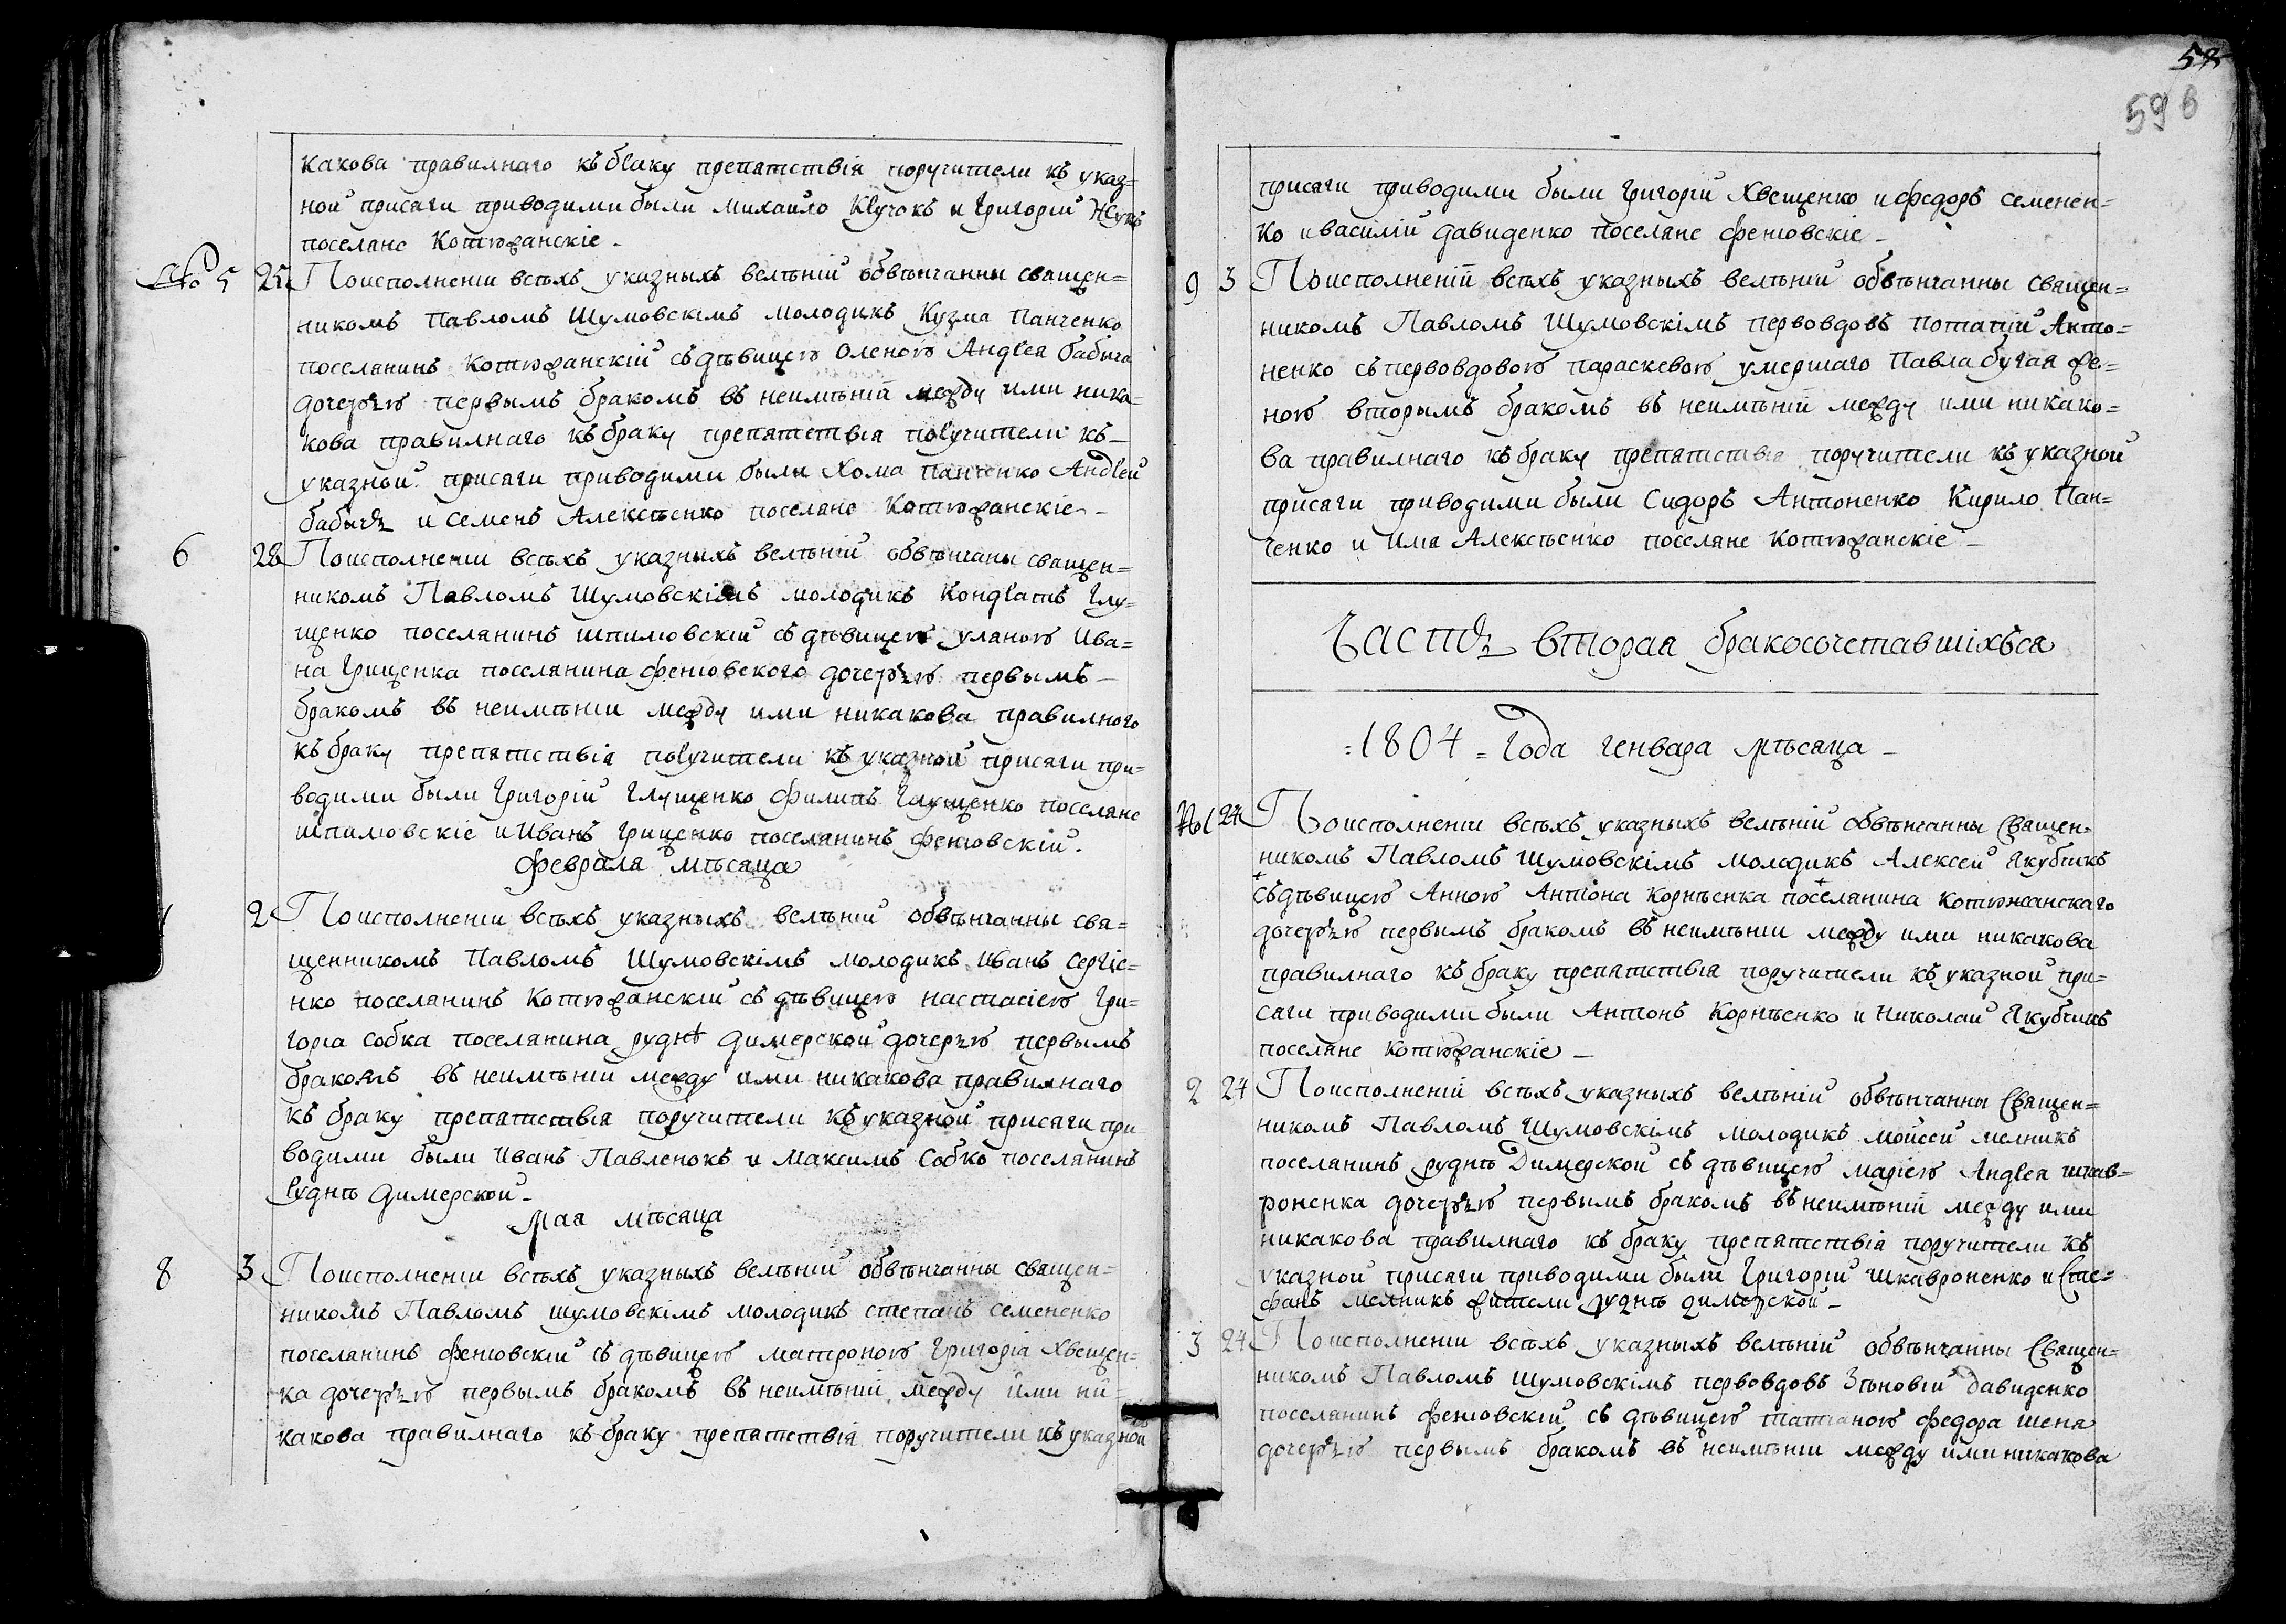 какова правилнаго къ браку препятствія поручители къ указ=
ной присяги приводими были Михайло Клучокъ и Григорій Жукъ
поселяне Котюжанскіе -
№ 5 25 По исполненіи всѣхъ указныхъ велѣній обвѣнчанны священ=
никомъ Павломъ Шумовскімъ молодикъ Кузма Панченко
поселянинъ Котюжанскій съ дѣвицею Оленою Андрея бабича
дочерѣю первымъ бракомъ въ неимѣній между ими ника=
кова правилнаго къ браку препятствія поручители къ
указной присяги приводими были Хома Панченко Андрей
бабичъ и Семенъ Алексѣенко поселяне Котюжанскіе -
6 28 По исполненіи всѣхъ указныхъ велѣній обвѣнчаны священ=
никомъ Павломъ Шумовскімъ молодикъ Кондратъ Глу=
щенко поселянинъ шпилювскій съ дѣвицею уляною Ива=
на Гриценка поселянина Фенювского дочерѣю первымъ
бракомъ въ неимѣніи между ими никакова правилного
къ браку препятствія поручители къ указной присяги при=
водими были Григорій Глущенко Филипъ Глущенко поселяне
шпилювскіе и Иванъ Гриценко поселянинъ Фенювскій.
Февраля мѣсяца
2 По исполненіи всѣхъ указныхъ велѣній обвѣнчанны свя=
щенникомъ Павломъ Шумовскімъ молодикъ Иванъ Сергіе=
нко поселянинъ Котюжанскій съ дѣвицею настасіею Гри=
горія Собка поселянина руднѣ Димерской дочерѣю первымъ
бракомъ въ неимѣніи между ими никакова правилнаго
къ браку препятствія поручители къ указной присяги при
водими были Иванъ Павленокъ и Максимъ Собко поселянинъ
руднѣ димерской -
мая мѣсяца
8 3 По исполненіи всѣхъ указныхъ велѣній обвѣнчанны священ=
никомъ Павломъ шумовскімъ молодикъ степанъ семененко
поселянинъ фенювскій съ дѣвицею матроною Григорія Хвещен=
ка дочерѣю первымъ бракомъ въ неимѣній между ими ни=
какова правилнаго къ браку препятствія поручители къ указной
59
присяги приводими были Григорій Хвещенко и Федоръ семенен=
ко и василій давиденко поселяне фенювскіе -
9 3 По исполненій всѣхъ указныхъ велѣній обвѣнчанны священ=
никомъ Павломъ Шумовскімъ первовдовъ потапій Анто=
ненко съ первовдовою параскевою умершаго Павла бугая же=
ною вторымъ бракомъ въ неимѣній между ими никако=
ва правилнаго къ браку препятствія поручители къ указной
присяги приводими были Сидоръ Антоненко Кирило Пан=
ченко и Алексѣенко поселяне Котюжанскіе -
Часть вторая бракосочетавшіхъся
=1804= Года генваря мѣсяца -
№ 1 24 По исполненіи всѣхъ указныхъ велѣній обвѣнчанны Священ=
никомъ Павломъ Шумовскімъ молодикъ Алексей Якубчикъ
съ дѣвицею Анною Антона Корнѣенка поселянина котюжанскаго
дочерѣю первымъ бракомъ въ неимѣніи между ими никакова
правилнаго къ браку препятствія поручители къ указной при=
сяги приводими были Антонъ Корнѣенко и Николай Якубчикъ
поселяне котюжанскіе -
2 24 По исполненій всѣхъ указныхъ велѣній обвѣнчанны Священ=
никомъ Павломъ Шумовскімъ молодикъ мойсей мелникъ
поселянинъ руднѣ Димерской съ дѣвицею маріею Андрея шкав=
роненка дочерѣю первымъ бракомъ въ неимѣній между ими
никакова правилнаго къ браку препятствія поручители къ
указной присяги приводими были Григорій шкавроненко и Сте=
фанъ мелникъ жители руднѣ димерской -
3 24 По исполненіи всѣхъ указныхъ велѣній обвѣнчанны Священ=
никомъ Павломъ Шумовскімъ первовдовъ Зѣновій давиденко
поселянинъ фенювскій съ дѣвицею татіаною федора шена
дочерѣю первымъ бракомъ въ неимѣніи между ими никакова